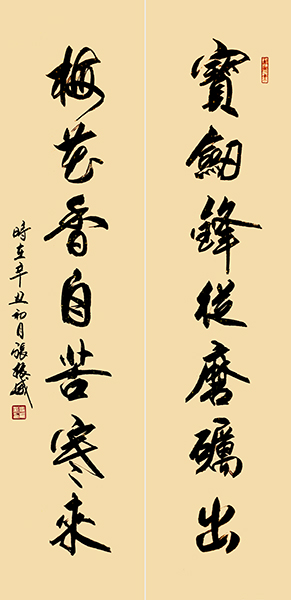 寶劍鋒從磨礪出
梅花香自苦寒來
時在辛丑初月張振威